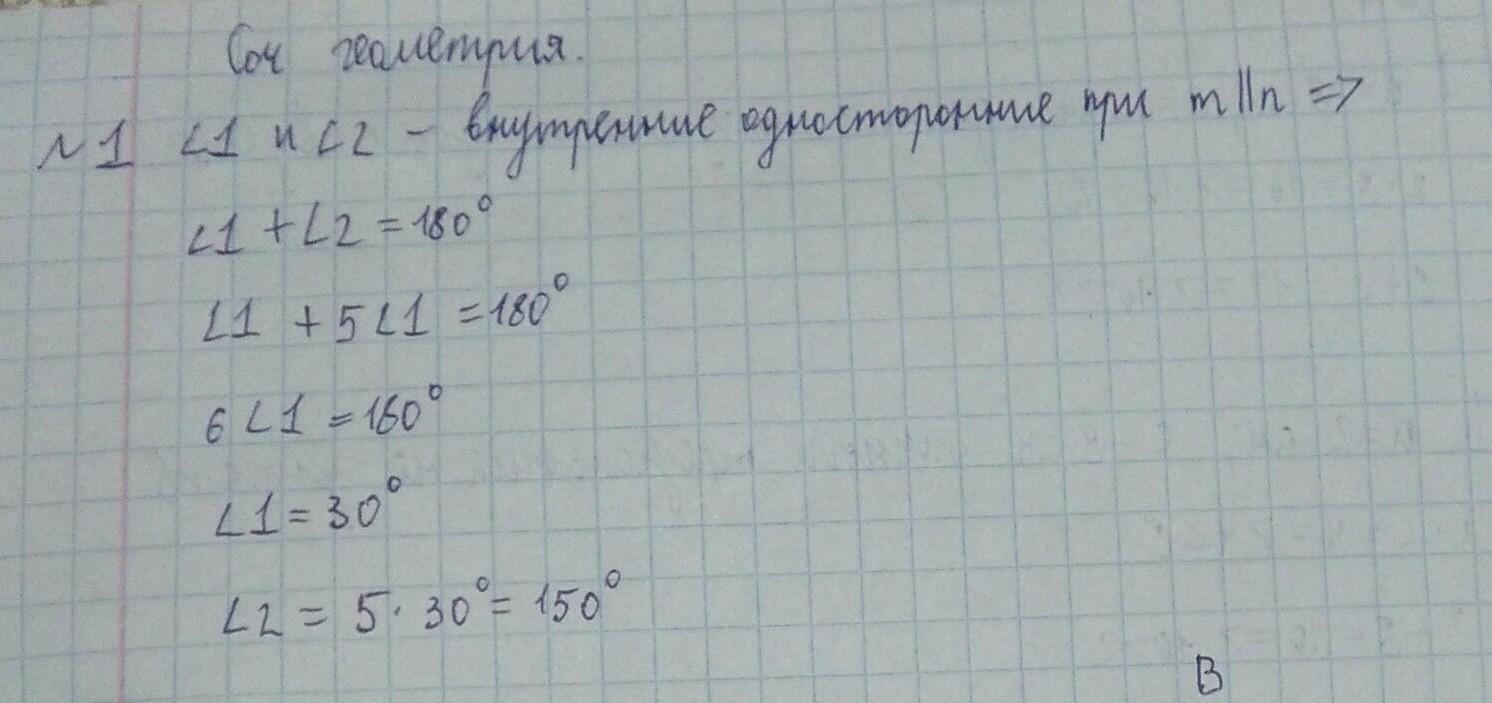 Соч геометрия.
№1 ∠1 и ∠2 – внутренние односторонние при m||n =>
∠1 + ∠2 = 180°
∠1 + 5∠1 = 180°
6∠1 = 180°
∠1 = 30°
∠2 = 5 · 30° = 150°
B